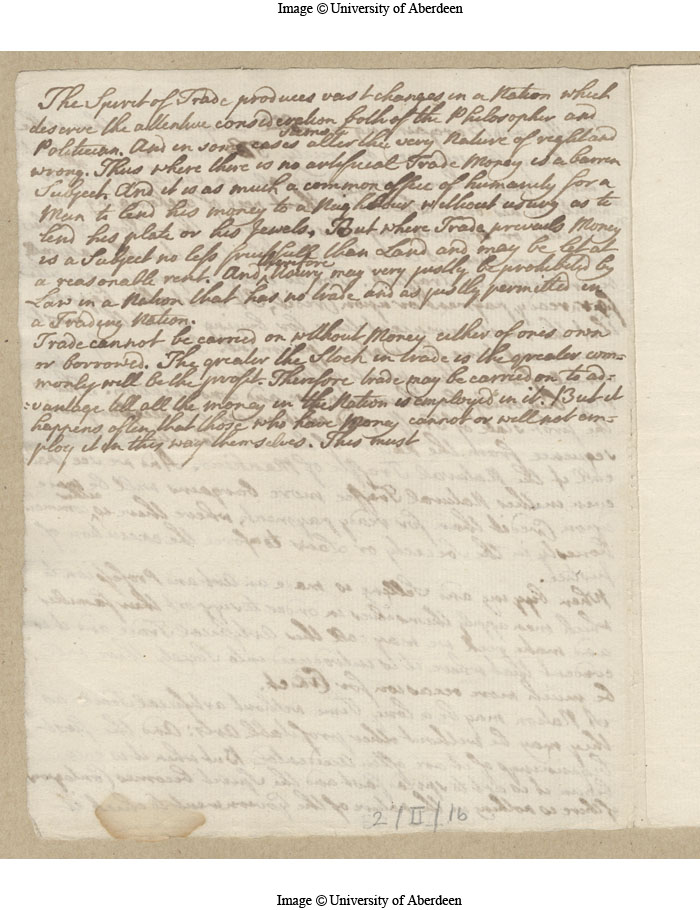 Image © University of Aberdeen
The Spirit of Trade produces vast changes in a Nation which
deserve the attentive consideration both of the Philosopher and
Politician. And in some cases alter the very Nature of right and
wrong. Thus where there is no artificial Trade Money is a barren
Subject. And it is as much a common office of humanity for a
Man to lend his money to a Neighbour without usury as to
lend his plate or his Jewels. But where Trade prevails Money
is a Subject no less fruitfull than Land and may be let at
a reasonable rent. And therefore Usury may very justly be prohibited by
Law in a Nation that has no trade and as justly permitted in
a Trading Nation.
Trade cannot be carried on without Money either of ones own
or borrowed. The greater the Stock in trade is the greater com=
monly will be the profit. Therefore trade may be carried on to ad=
=vantage till all the money in the Nation is employed in it. But it
happens often, that those who have Money cannot or will not em=
ploy it in this way themselves. This must
2/II/16
Image © University of Aberdeen